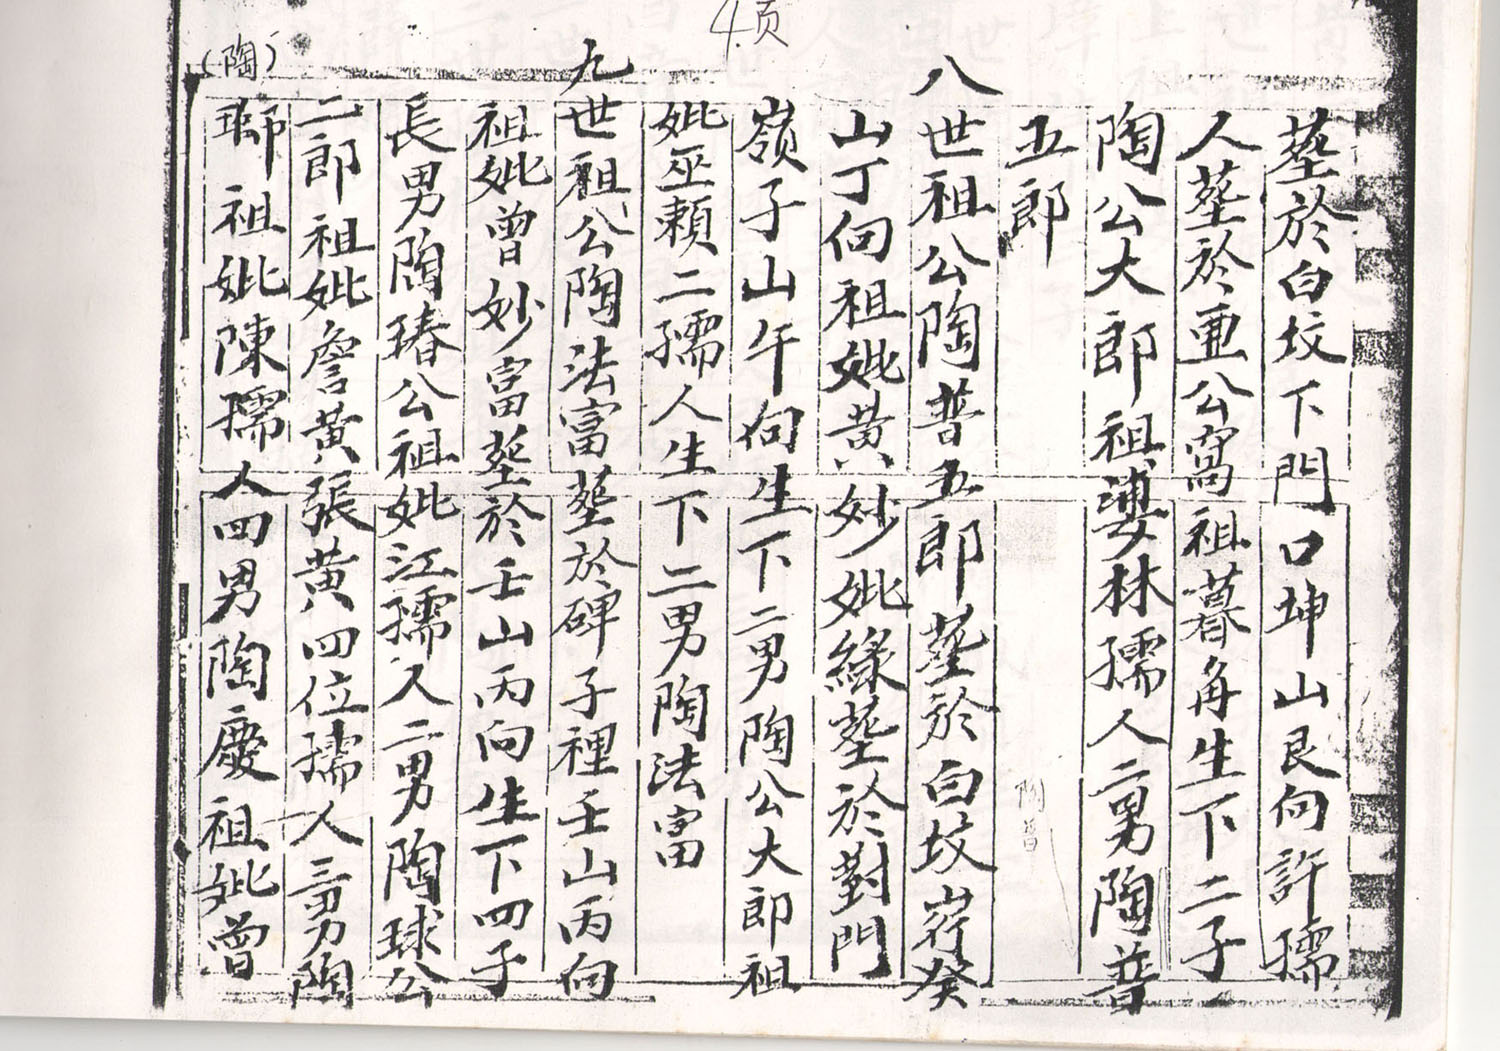 4页
(陶)
塟於白坟下門口坤山艮向許孺
人塟於亜公窩祖暮角生下二子
陶公大郎祖婆林孺人二男陶普
五郎
八世祖公陶普五郎塟於白坟崗癸
山丁向祖妣黄妙妣緑塟於對門
嶺子山午向生下二男陶公大郎祖
妣巫頼二孺人生下二男陶法富
九世祖公陶法富塟於碑子裡壬山丙向
祖妣曾妙富塟於壬山丙向生下四子
長男陶瑃公祖妣江孺人二男陶球公
二郎祖妣詹黄張黄四位孺人三男陶
瑯祖妣陳孺人四男陶慶祖妣曾
陶普